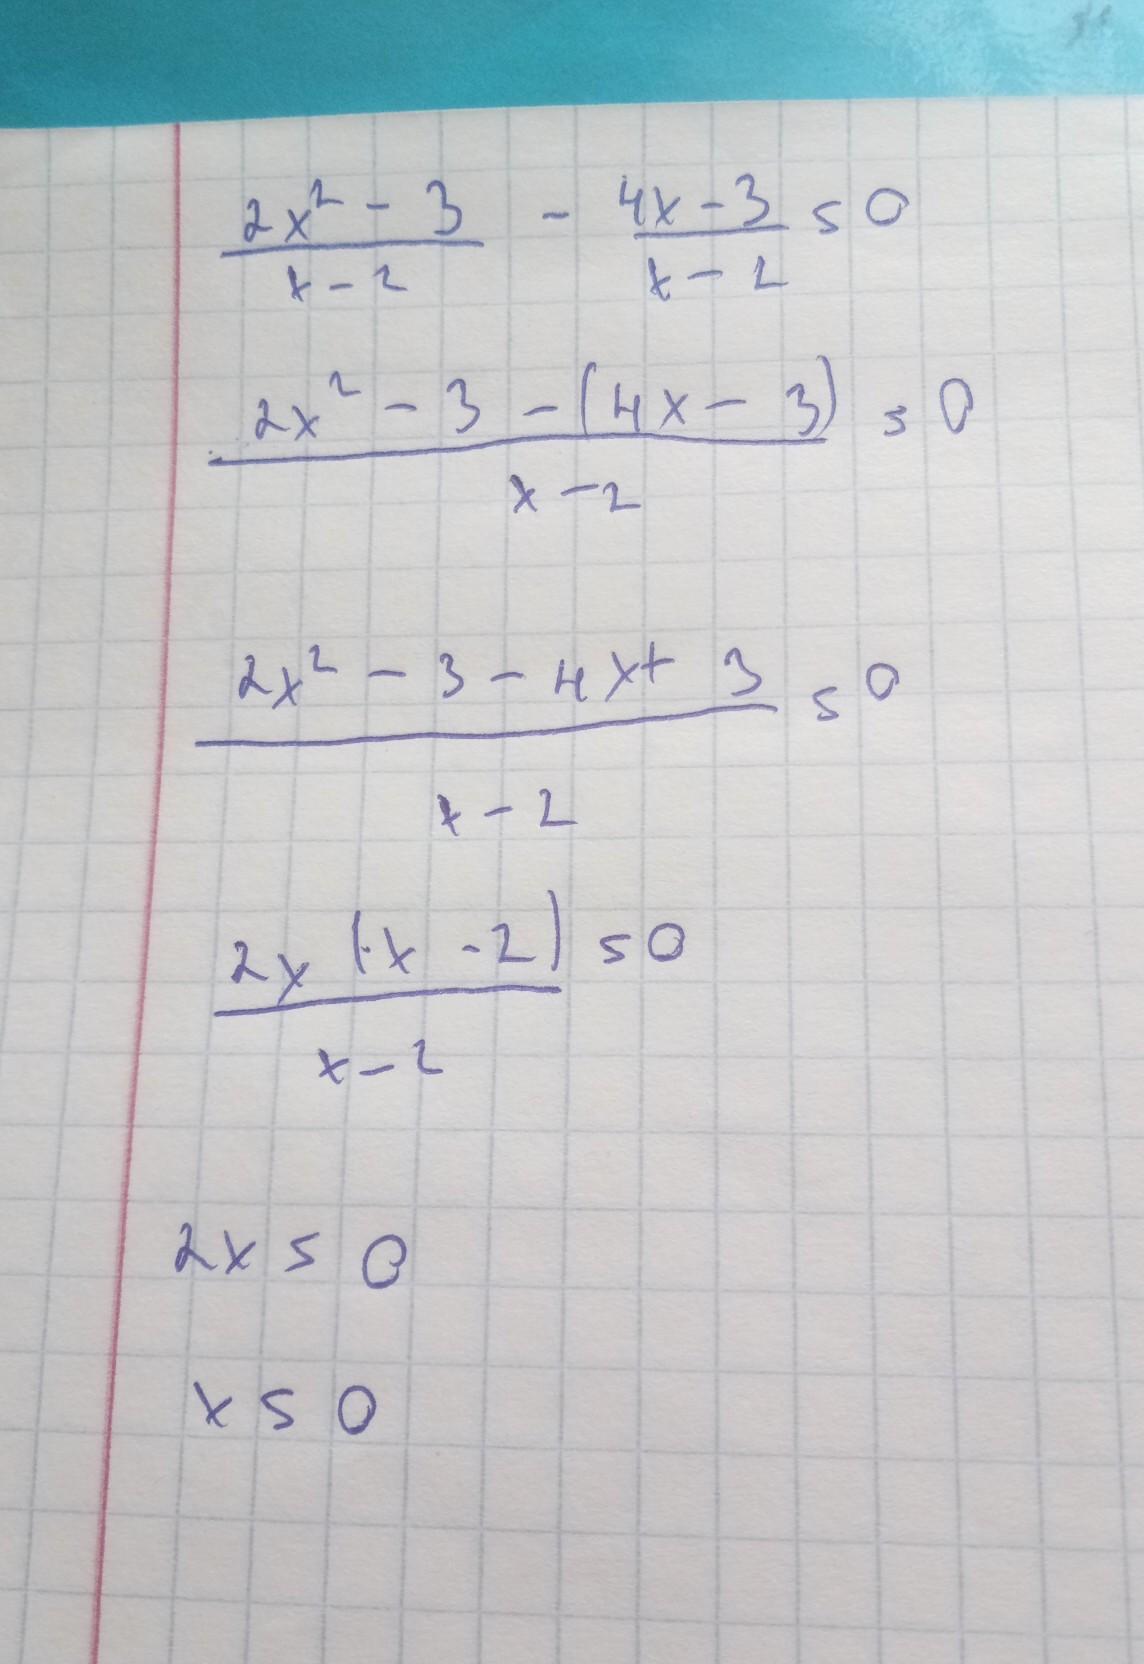 (2x² - 3)/(x - 2) - (4x - 3)/(x - 2) = 0
(2x² - 3 - (4x - 3))/(x - 2) = 0
(2x² - 3 - 4x + 3)/(x - 2) = 0
(2x (x - 2))/(x - 2) = 0
2x = 0
x = 0